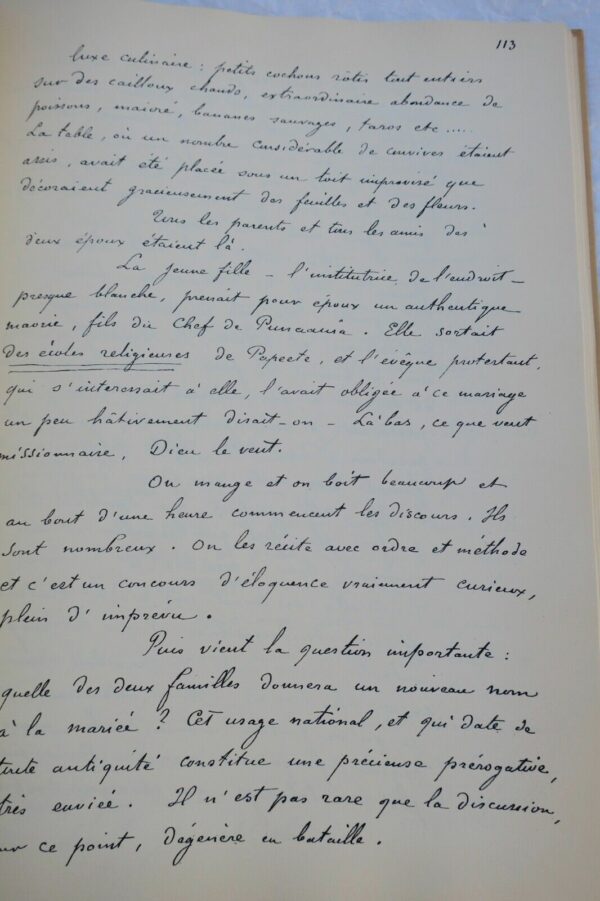 113
luxe culinaire : petits cochons rôtis tout entiers
sur des cailloux chauds, extraordinaire abondance de
poissons, maioré, bananes sauvages, taros etc ....
La table, où un nombre considérable de convives étaient
assis, avait été placée sous un toit improvisé que
décoraient gracieusement des feuilles et des fleurs.
Tous les parents et tous les amis des
deux époux étaient là.
La jeune fille - l'institutrice de l'endroit -
presque blanche, prenait pour époux un authentique
maorie, fils du Chef de Punaauïa. Elle sortait
des écoles religieuses de Papeete, et l'évêque protestant,
qui s'interessait à elle, l'avait obligée à ce mariage
un peu hâtivement disait-on - Là bas, ce que veut
missionnaire, Dieu le veut.
On mange et on boit beaucoup et
au bout d'une heure commencent les discours. Ils
sont nombreux. On les récite avec ordre et méthode
et c'est un concours d'éloquence vraiment curieux,
plein d'imprévu.
Puis vient la question importante :
quelle des deux familles donnera un nouveau nom
à la mariée ? Cet usage national, et qui date de
toute antiquité constitue une précieuse prérogative,
très enviée. Il n'est pas rare que la discussion,
sur ce point, dégénère en bataille.